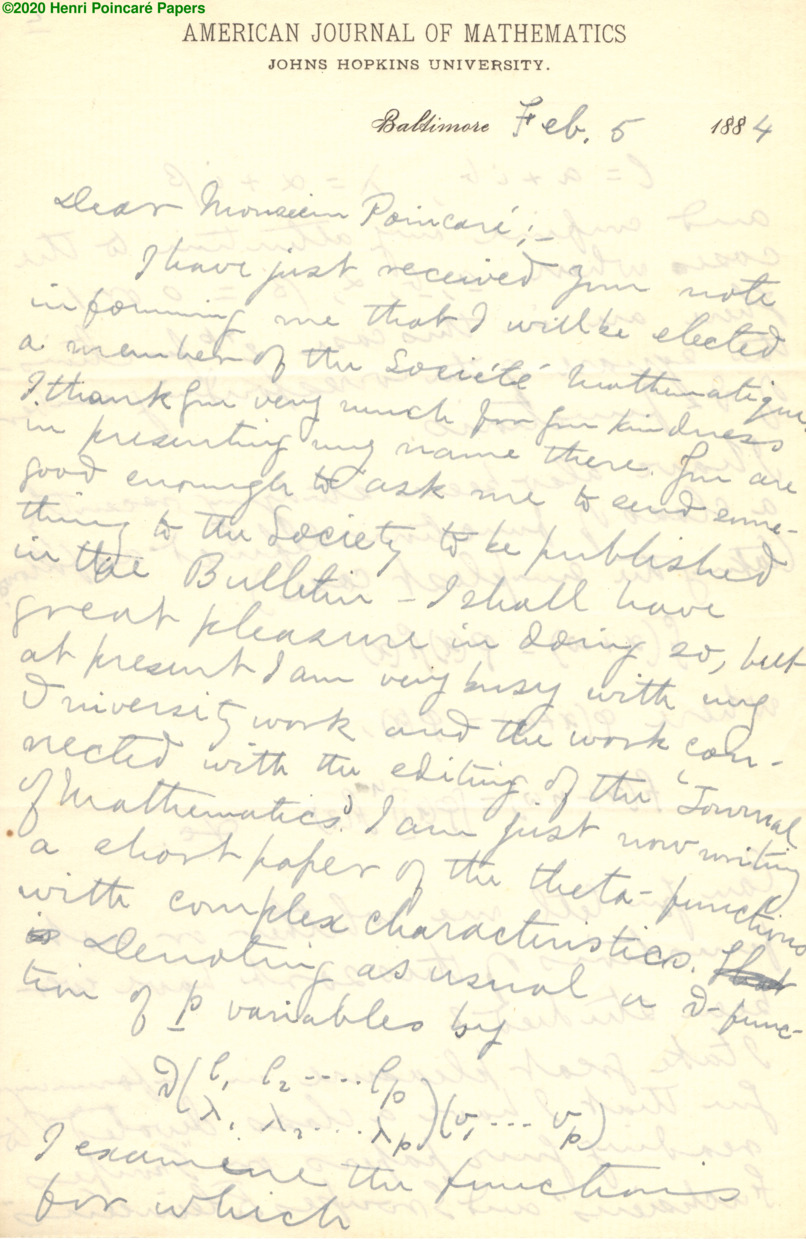 ©2020 Henri Poincaré Papers
AMERICAN JOURNAL OF MATHEMATICS
JOHNS HOPKINS UNIVERSITY.
Baltimore Feb. 5 1884
Dear Monsieur Poincaré;–
I have just received your note
informing me that I will be elected
a member of the Société Mathematique.
I thank you very much for your kindness
in presenting my name there. You are
good enough to ask me to send some-
thing to the Society to be published
in the Bulletin – I shall have
great pleasure in doing so, but
at present I am very busy with my
University work and the work con-
nected with the editing of the "Journal
of Mathematics". I am just now writing
a short paper of the theta-functions
with complex characteristics.
Denoting as usual a ϑ-func-
tion of p variables by
ϑ(l₁ l₂ ---- lp
λ₁ λ₂ ... λp)(v₁ --- vp)
I examine the functions
for which